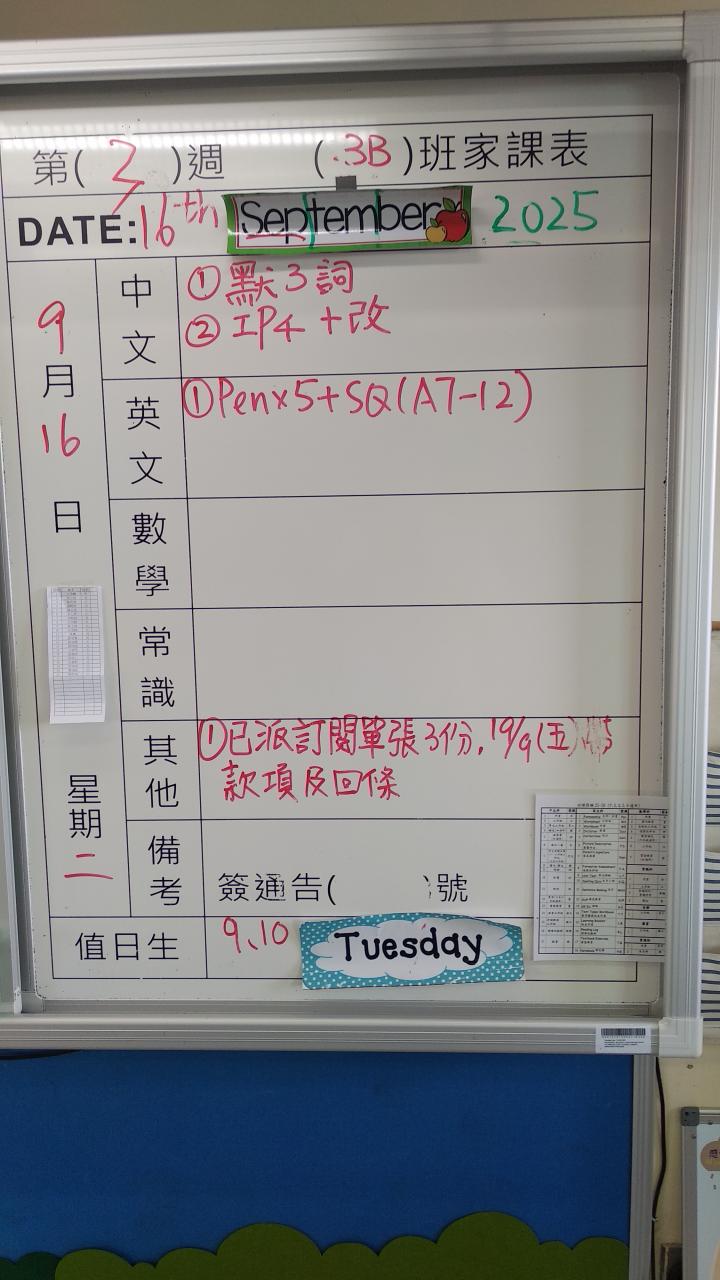 第( )週 (3B)班家課表
DATE: 16th September 2025
9月16日
星期二
中文
①默3詞
②IP4+改
英文
①Pen×5+SQ(A7-12)
數學
常識
其他
①已派訂閱單張3份,19/9(五)
款項及回條
備考
簽通告( )號
值日生
9、10
Tuesday